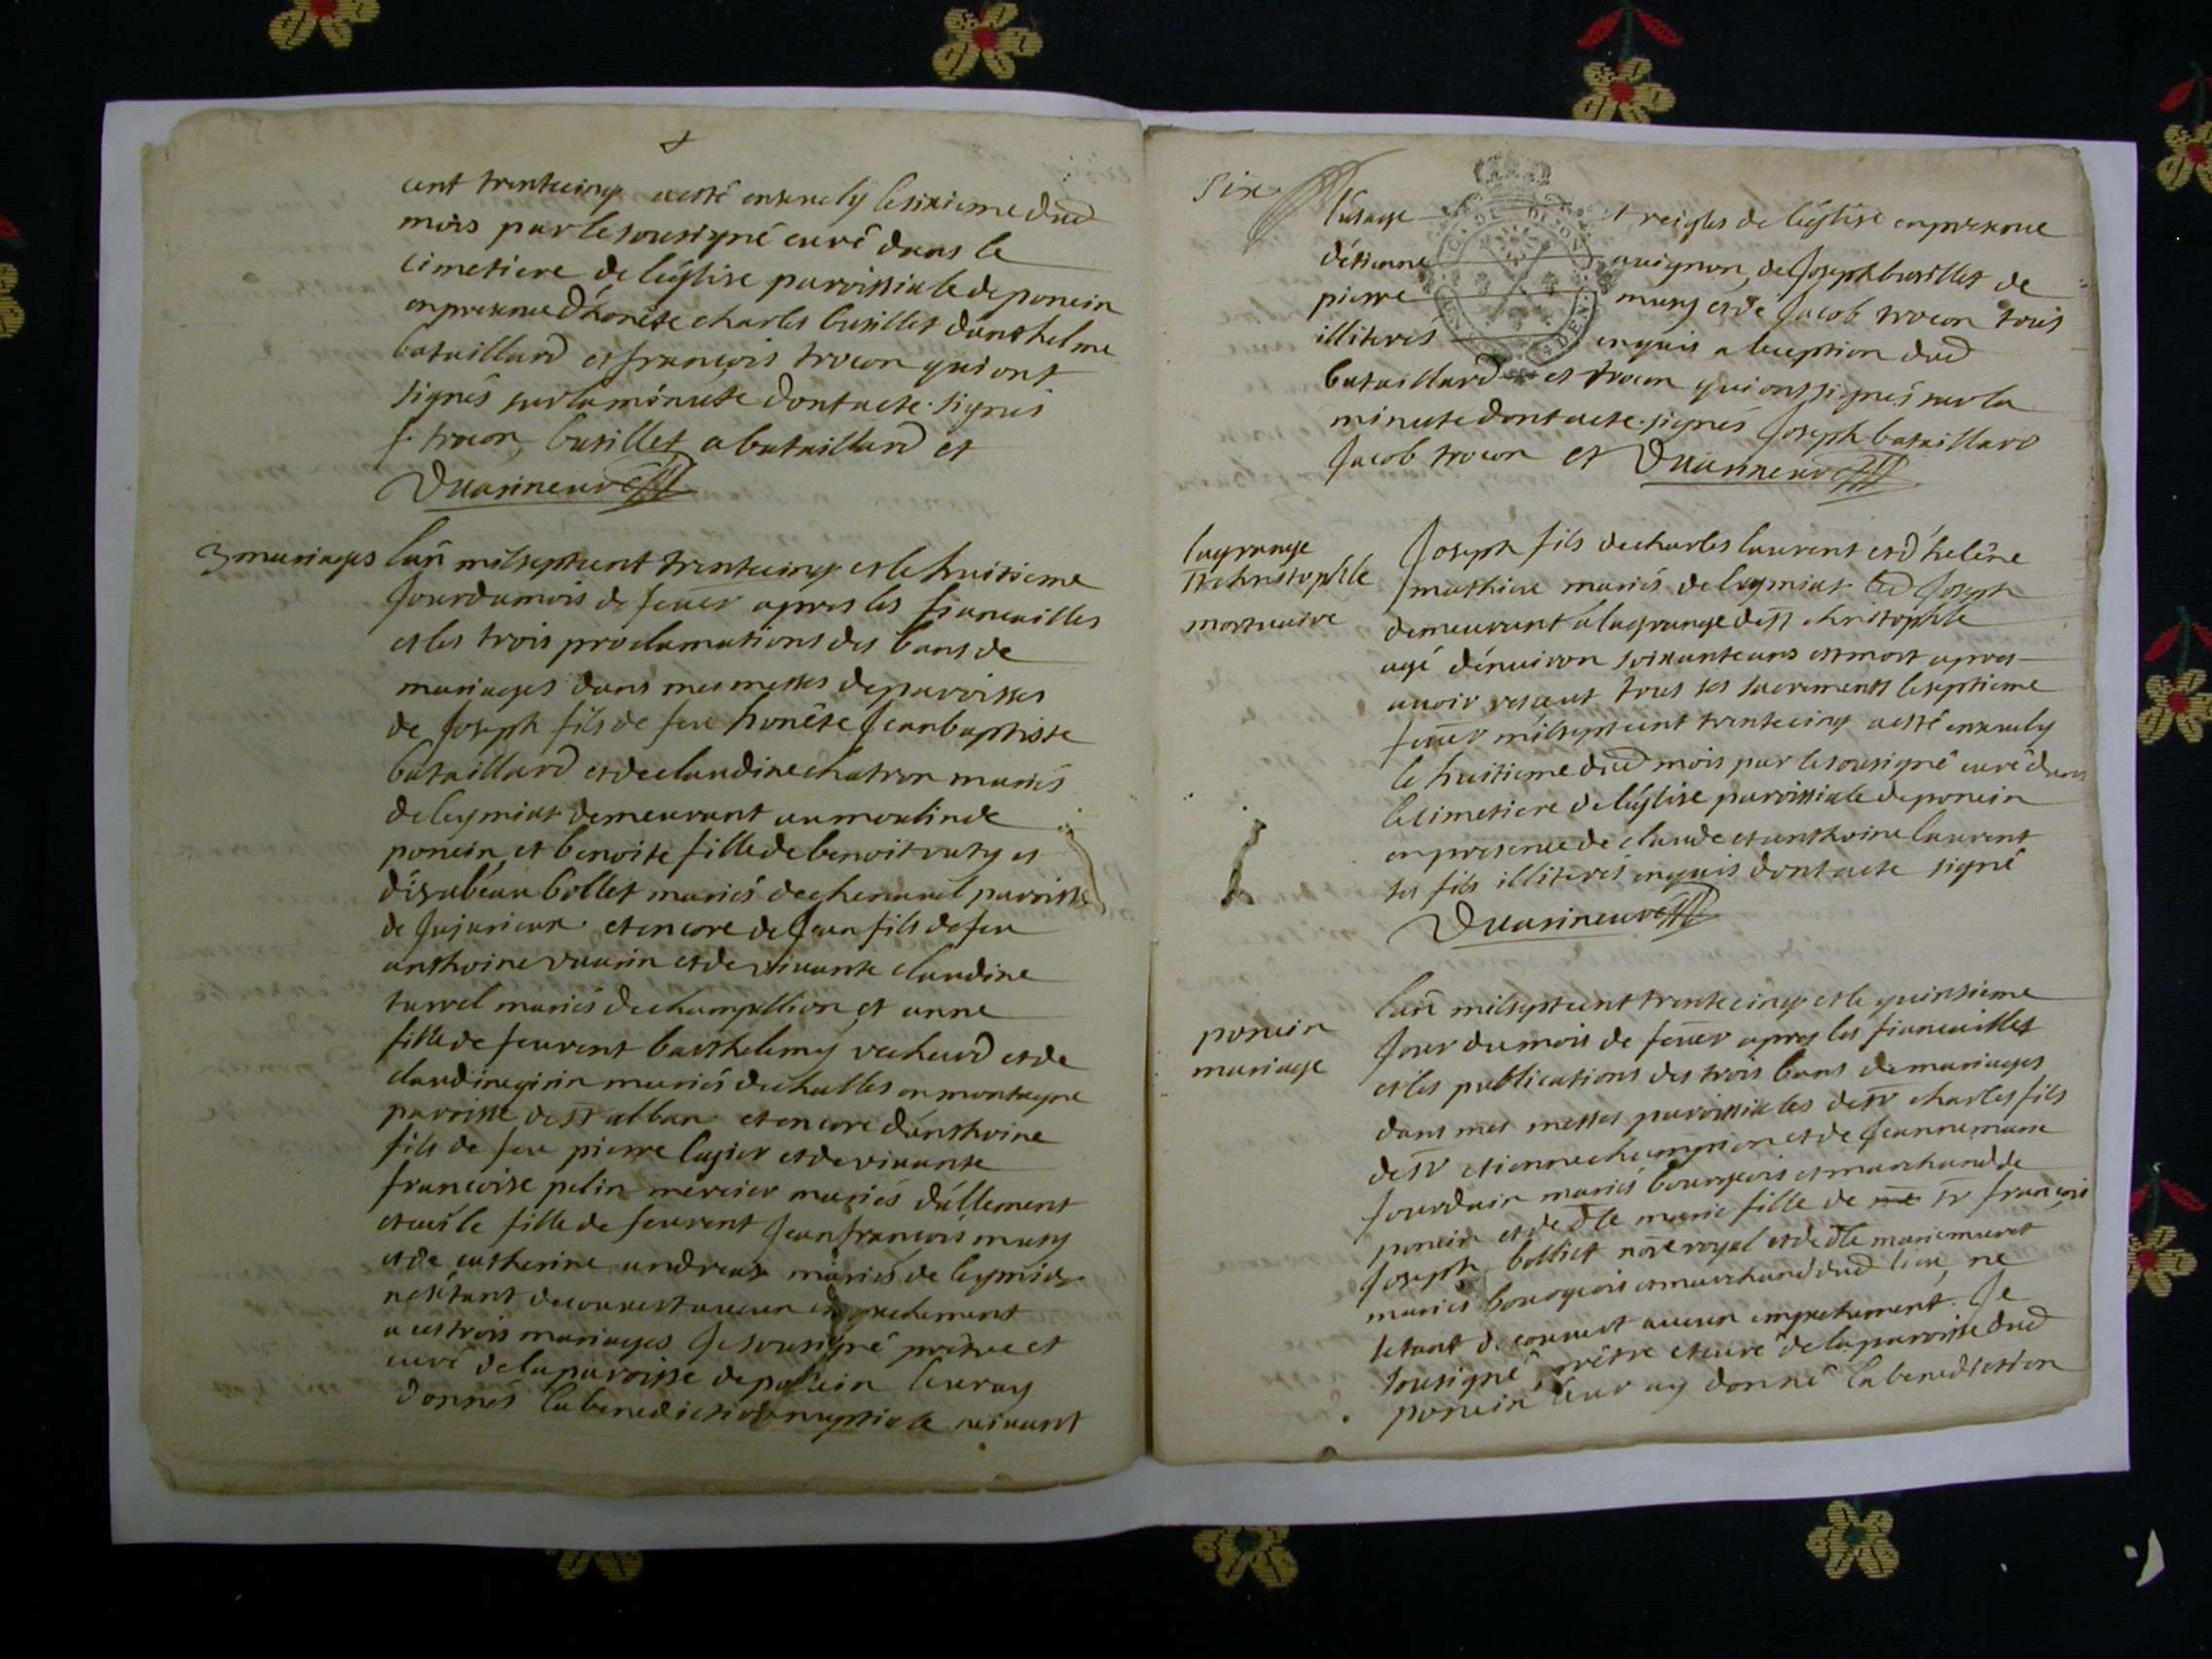 cent trentecinq aesté ensevely lesixieme dud
mois par le sousigné curé dans le
cimetiere de l'église paroissiale de poncin
en presence d'honéte charles busillet d'anthelme
bataillard et françois trocon qui ont
signés sur la minute dont acte. signés
f. trocon, busillet a bataillard et
Duarineur
3 mariages
lan milseptcent trentecinq et le huitieme
Jour du mois de fevrer apres les fiancailles
et les trois proclamations des bans de
mariages dans mes messes de paroisses
de Joseph fils de feu honéte Jeanbaptiste
bataillard et de claudine chatron mariés
de leymiat demeurant au moulin de
poncin, et benoite fille de benoit ruty et
d'isabeau bollet mariés de chenavel paroisse
de Jujurieux. et encore de Jean fils de feu
anthoine vuarin et de vivante claudine
turrel mariés de champellion, et anne
fille de feu vent barthelemy vechard et de
claudine girin mariés de challes en montagne
paroisse de st alban. et encore d'anthoine
fils de feu pierre lagier et de vivante
francoise pelin mercier mariés d'allement
et fille de feu vent Jean francois musy
et de catherine andreas mariés de leymiat
nesétant decouvert aucun empechement
a ces trois mariages Je sousigné prétre et
curé de la paroisse de poncin leur ay
donnés la benediction nuptiale suivant
Six
l'usage et reigles de l'église en presence
d'étienne avignon, de Joseph busillet de
pierre musy et de Jacob trocon tous
illiterés enquis a leception dud
bataillard et trocon qui ont signés sur la
minute dont acte. signés Joseph bataillard
Jacob trocon et Duarineur
lagrange
st christophle
mortuaire
Joseph fils de charles laurent et d'heléne
mathieu mariés de leymiat led Joseph
demeurant a la grange de st christophle
agé d'énviron soixante ans est mort apres
avoir receut tous ses sacrements le septieme
fevrer milseptcent trentecinq aesté ensevely
le huitieme dud mois par le sousigné curé dans
le cimetiere de l'église paroissiale de poncin
en presence de claude et anthoine laurent
ses fils illiterés enquis dont acte signé
Duarineur
poncin
mariage
lan milseptcent trentecinq et le quinsieme
Jour du mois de fevrer apres les fiancailles
et les publications des trois bans de mariages
dans mes messes paroissiales de sr charles fils
de sr etienne champion et de Jeanne marie
Jourdain mariés bourgeois et marchand de
poncin et de dlle marie fille de me sr françois
Joseph bolliet nore royal et de dlle marie muret
mariés bourgeois et marchand dud lieu, ne
setant decouvert aucun empechement. Je
sousigné prétre et curé de la paroisse dud
poncin leur ay donné la benediction